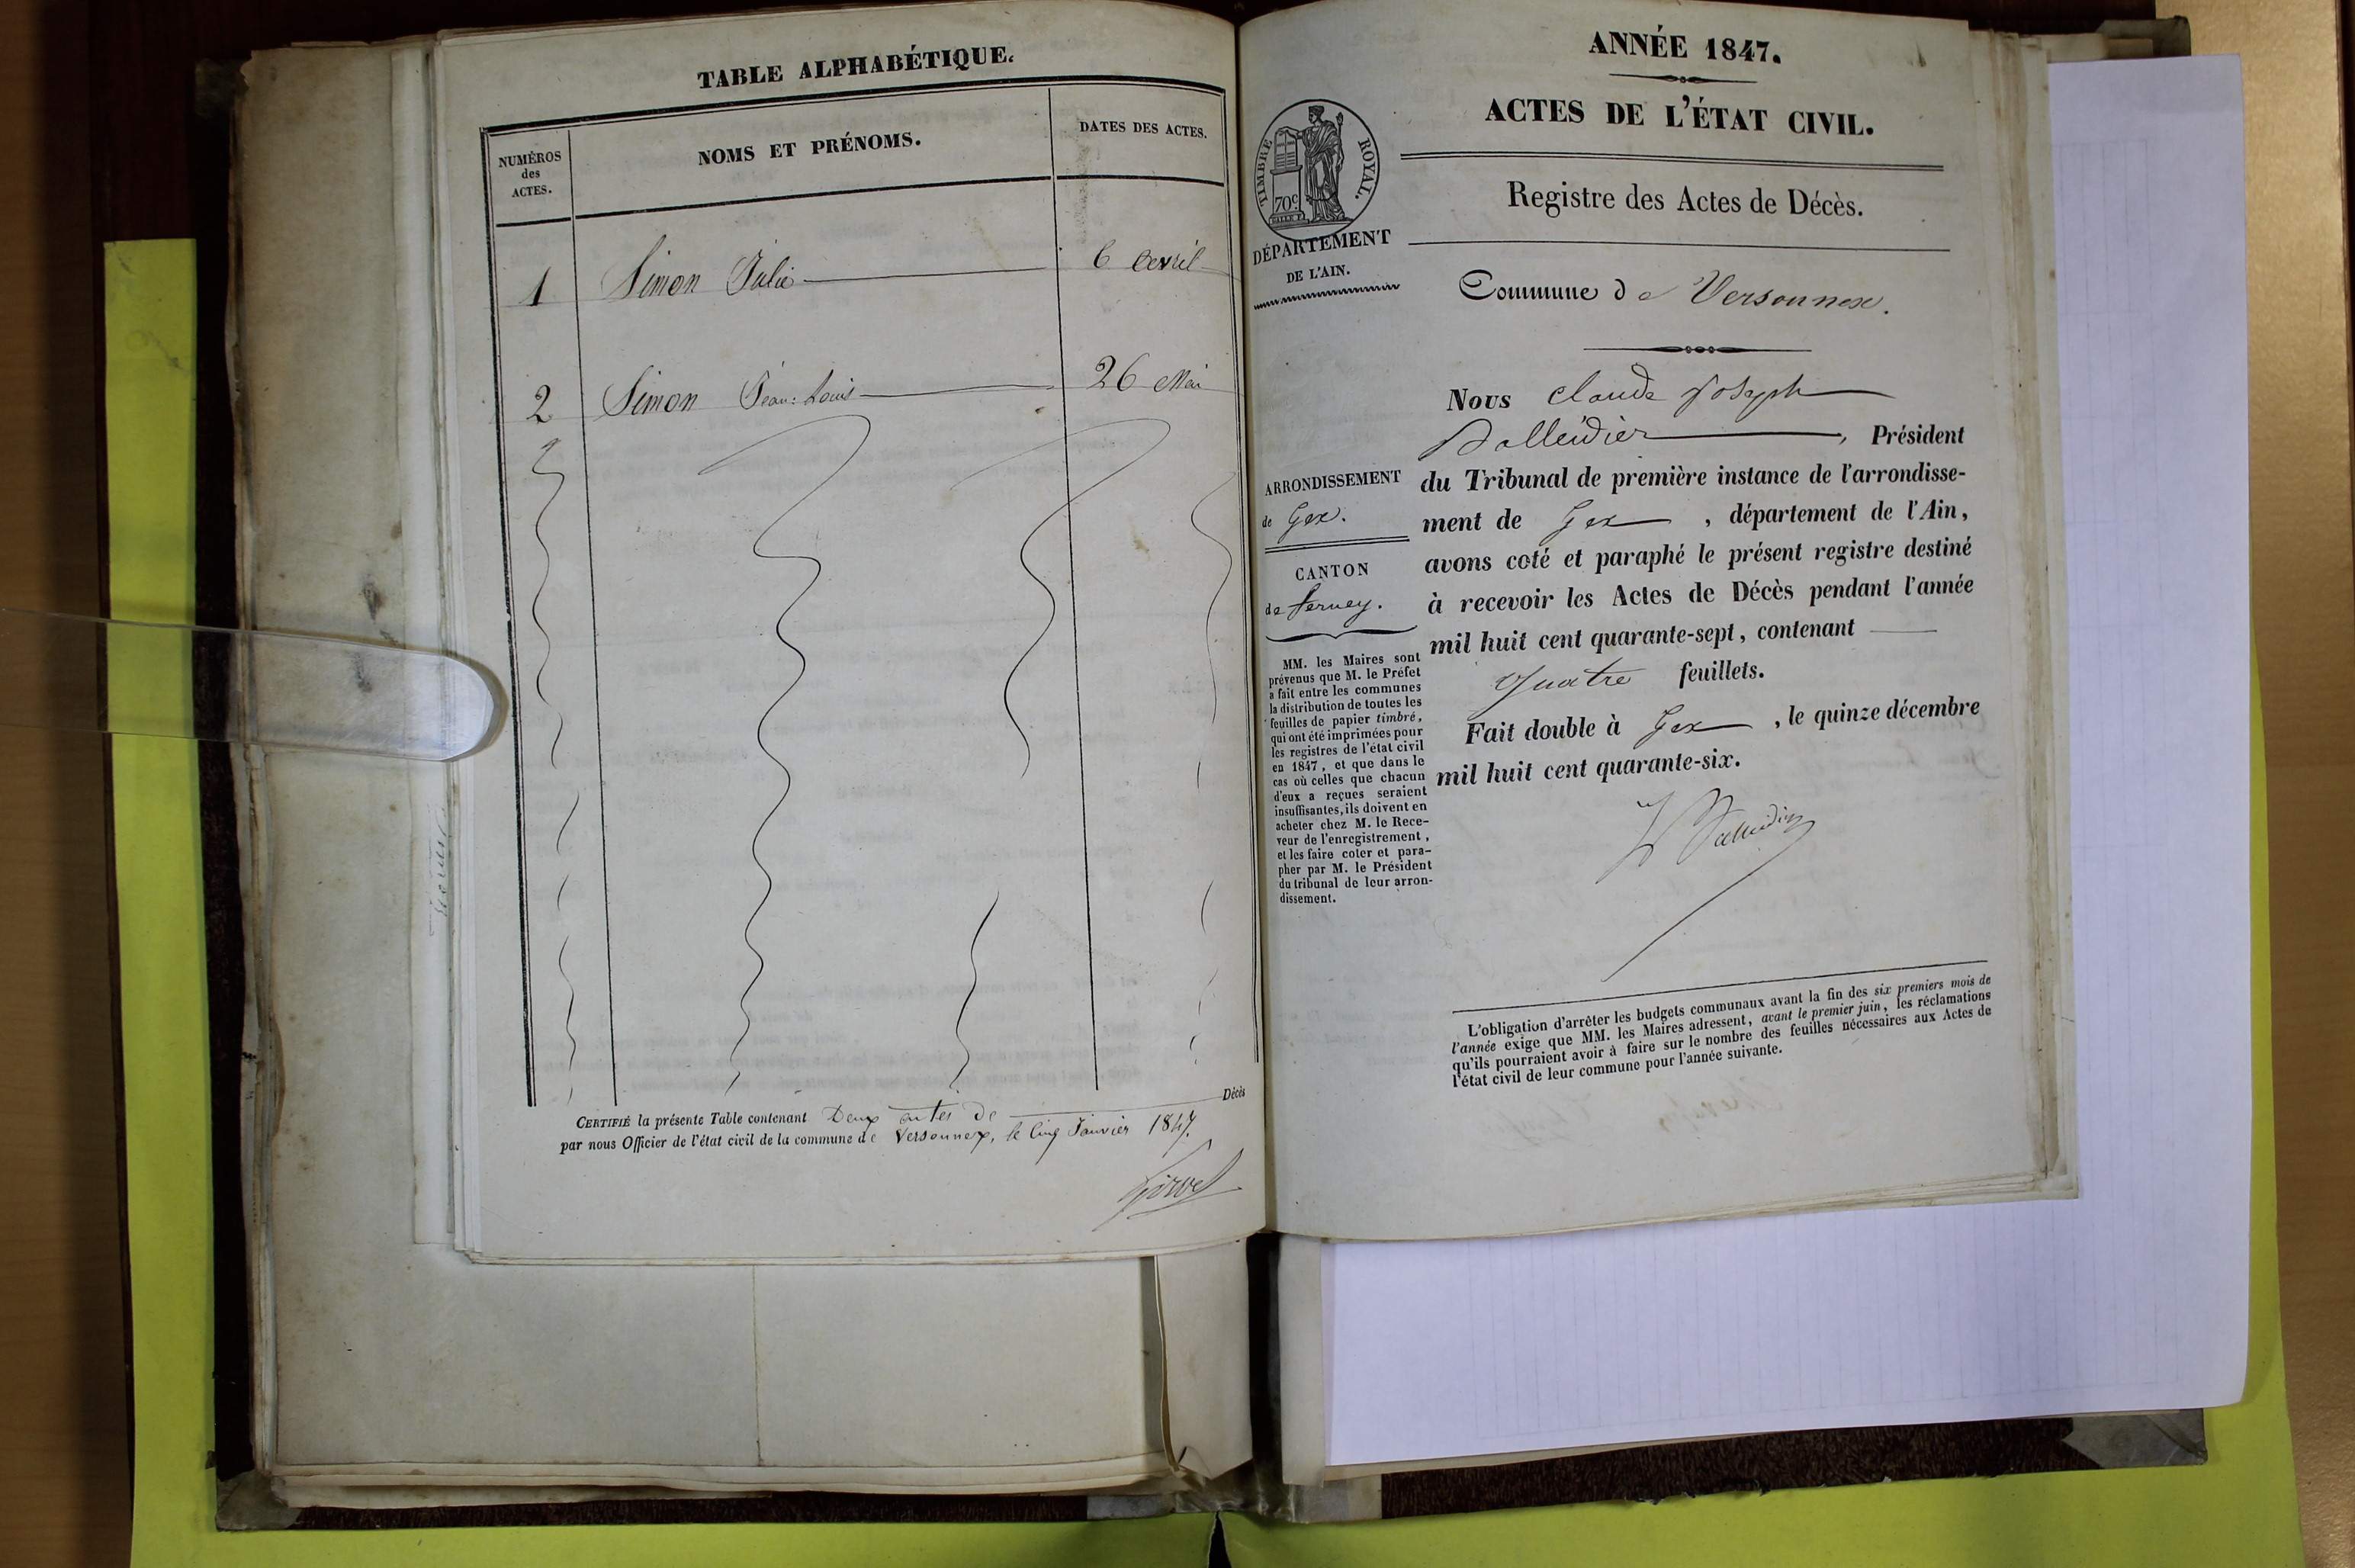 TABLE ALPHABÉTIQUE.
NUMÉROS
des
ACTES.
NOMS ET PRÉNOMS.
DATES DES ACTES.
1 Simon Julie 6 avril
2 Simon Jean-Louis 26 Mai
Décès
CERTIFIÉ la présente Table contenant Deux actes de
par nous Officier de l'état civil de la commune de Versonnex, le Cinq Janvier 1847.
ANNÉE 1847.
ACTES DE L'ÉTAT CIVIL.
Registre des Actes de Décès.
TIMBRE ROYAL.
70c
DÉPARTEMENT
DE L'AIN.
Commune de Versonnex.
Nous Claude Joseph
Balleidier, Président
du Tribunal de première instance de l'arrondisse-
ment de Gex, département de l'Ain,
avons coté et paraphé le présent registre destiné
à recevoir les Actes de Décès pendant l'année
mil huit cent quarante-sept, contenant
quatre feuillets.
Fait double à Gex, le quinze décembre
mil huit cent quarante-six.
Balleidier
ARRONDISSEMENT
de Gex.
CANTON
de ferney.
MM. les Maires sont
prévenus que M. le Préfet
a fait entre les communes
la distribution de toutes les
feuilles de papier timbré,
qui ont été imprimées pour
les registres de l'état civil
en 1847, et que dans le
cas où celles que chacun
d'eux a reçues seraient
insuffisantes, ils doivent en
acheter chez M. le Rece-
veur de l'enregistrement,
et les faire coter et para-
pher par M. le Président
du tribunal de leur arron-
dissement.
L'obligation d'arrêter les budgets communaux avant la fin des six premiers mois de
l'année exige que MM. les Maires adressent, avant le premier juin, les réclamations
qu'ils pourraient avoir à faire sur le nombre des feuilles nécessaires aux Actes de
l'état civil de leur commune pour l'année suivante.